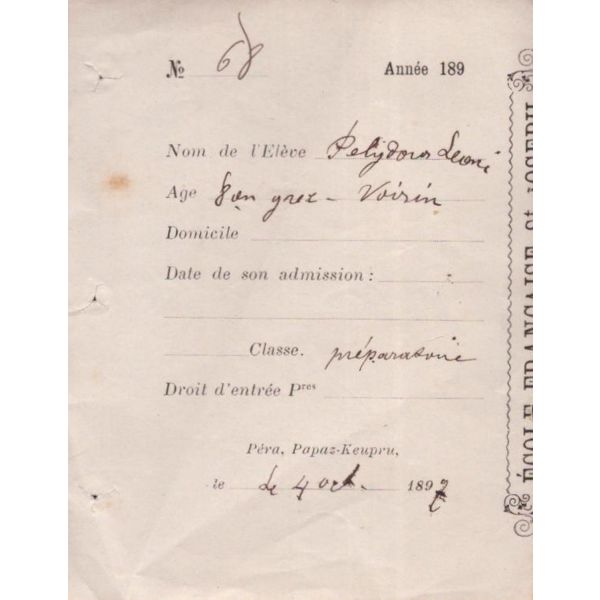 № 68 Année 189
Nom de l'Elève Polydoros Leoni
Age 8 an grec - Voisin
Domicile
Date de son admission :
Classe. préparatoire
Droit d'entrée Pres
Péra, Papaz-Keupru,
le Le 4 oct. 1897
ÉCOLE FRANÇAISE St JOSEPH